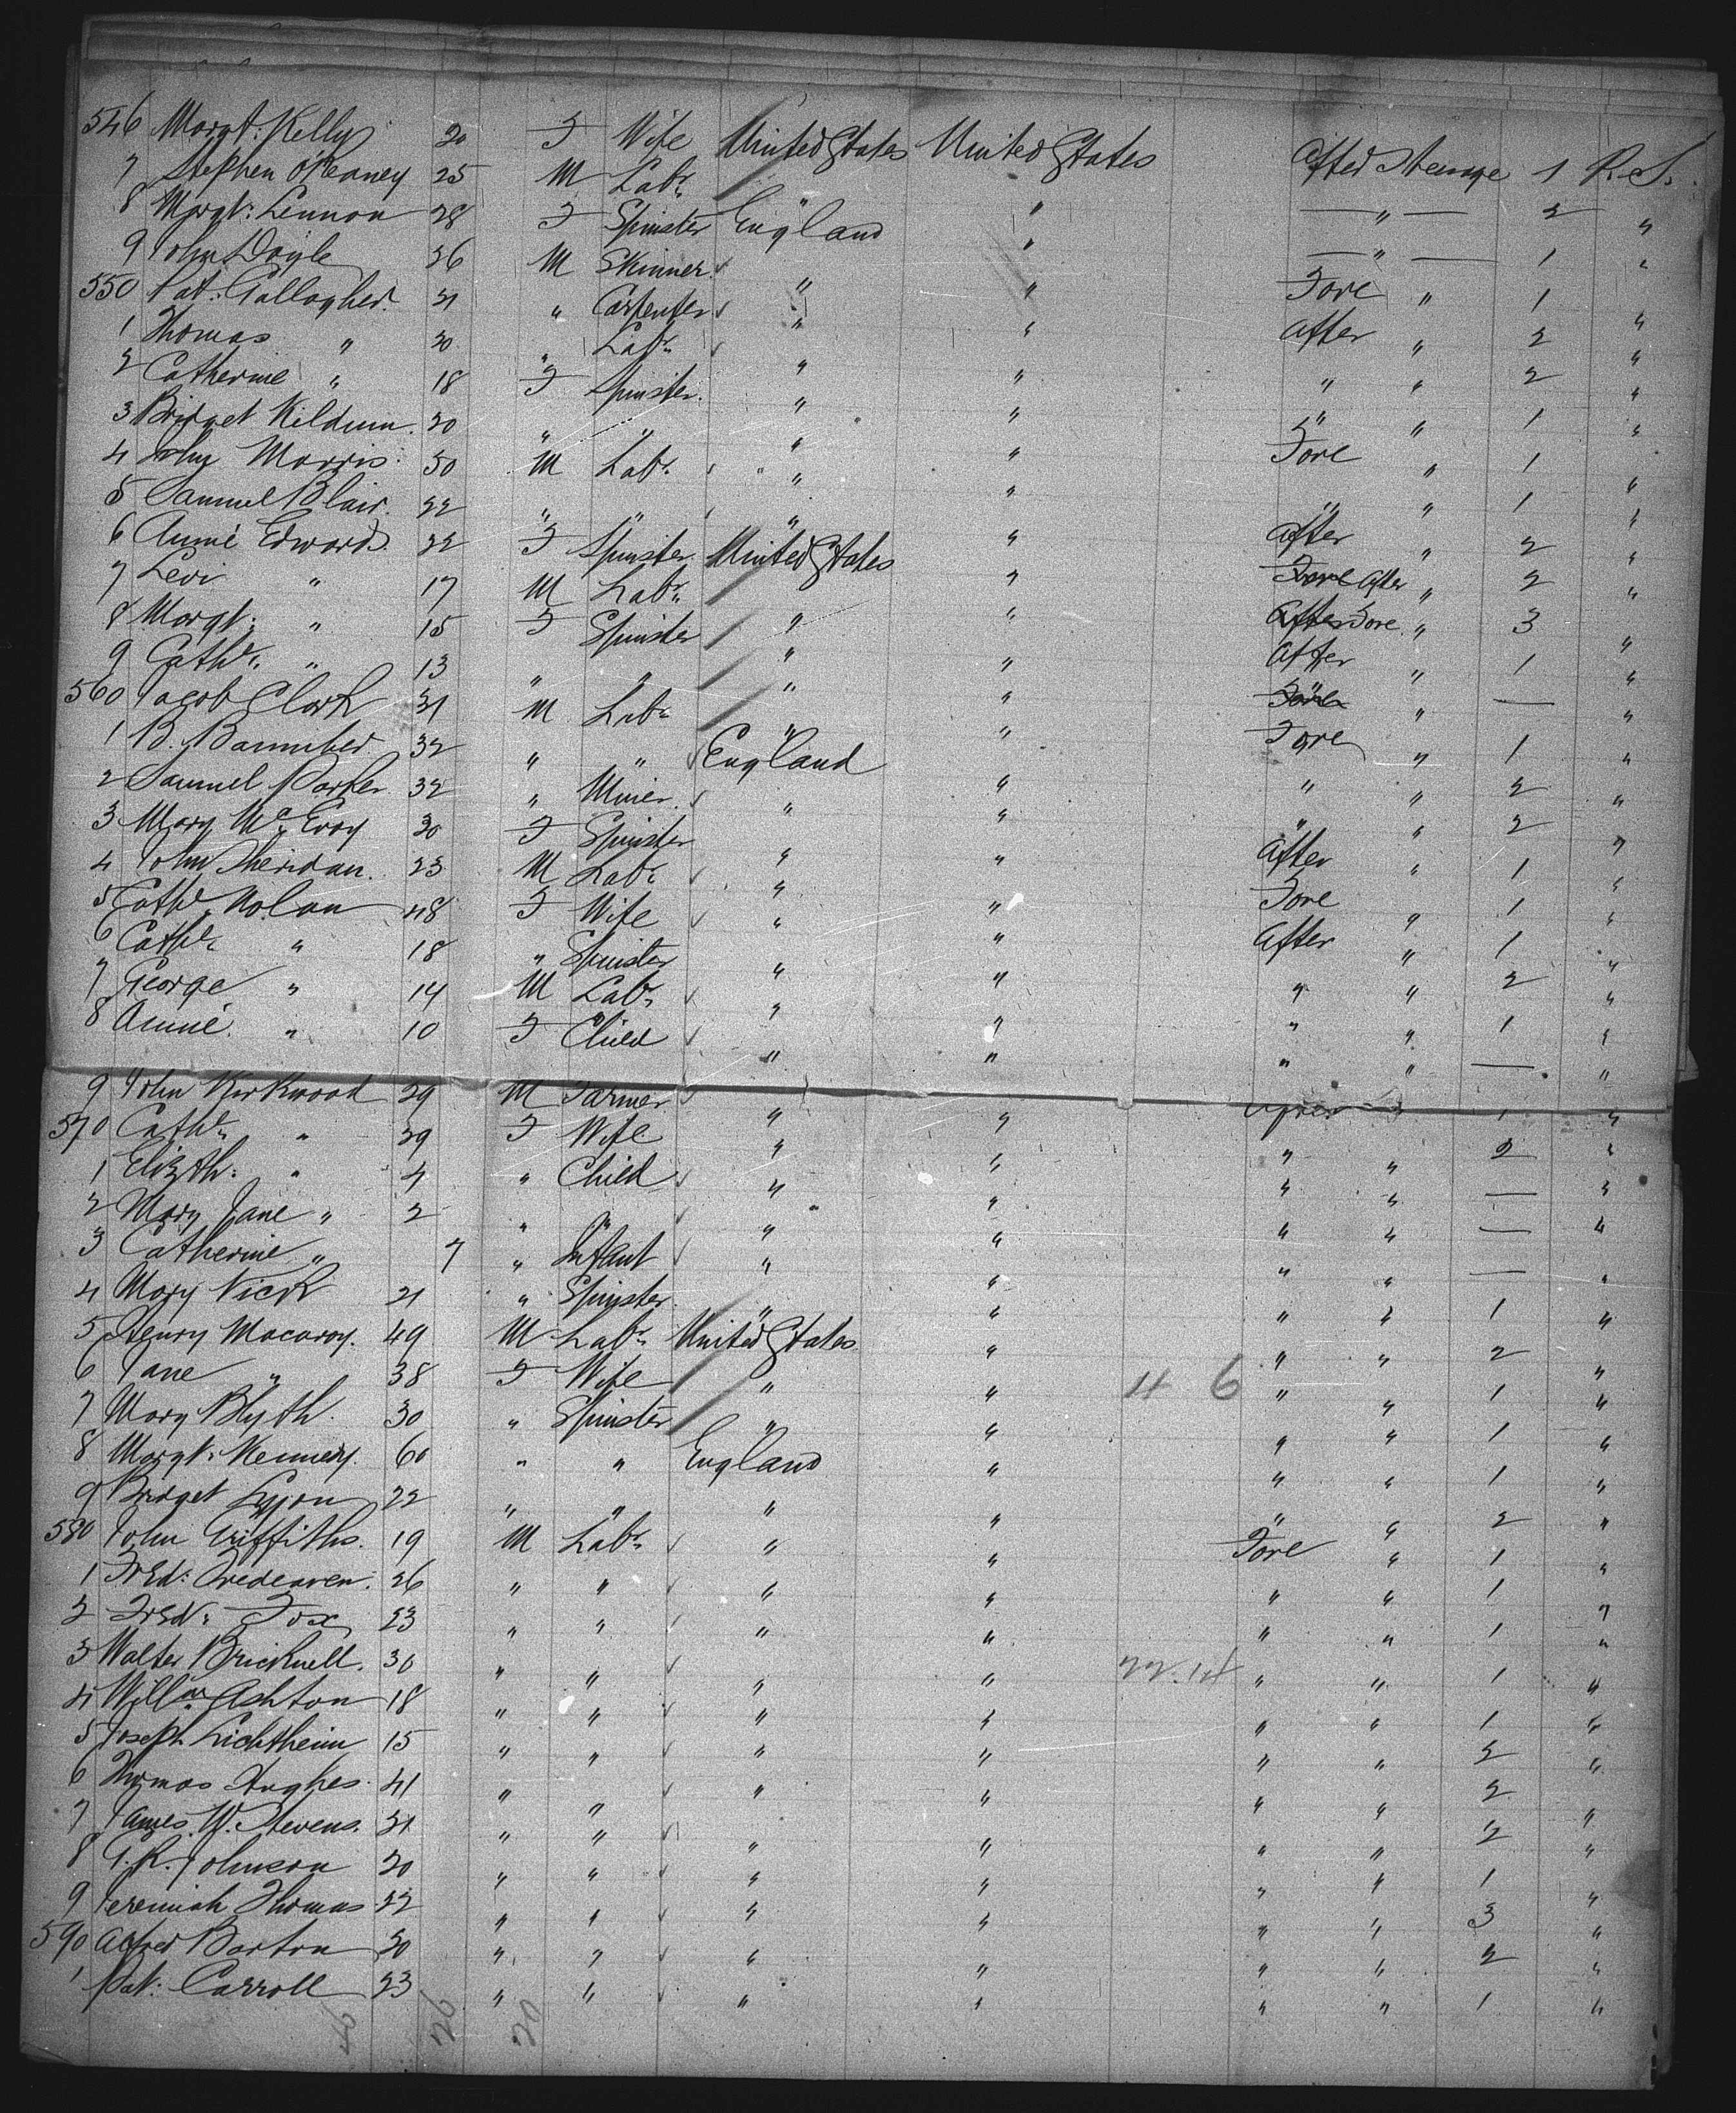 546 Margt: Kelly 20 F Wife United States United States After Steerage 1 R.S.
7 Stephen O'Reaney 25 M Labr. " " — " — 2 "
8 Margt: Lennon 28 F Spinster England " — " — 1 "
9 John Doyle 26 M Skinner " " Fore " 1 "
550 Pat: Gallagher. 21 " Carpenter " " After " 2 "
1 Thomas " 20 " Labr. " " " " 2 "
2 Catherine " 18 F Spinster. " " " " 1 "
3 Bridget Kildum. 20 " " " " Fore " 1 "
4 John Morris. 50 M Labr. " " " " 1 "
5 Samuel Blair. 22 " " " " After " 2 "
6 Annie Edwards. 22 F Spinster United States " Fore After " 2 "
7 Levi " 17 M Labr. " " After Fore " 3 "
8 Margt: " 15 F Spinster " " After " 1 "
9 Cathe. " 13 " " " " Fore " — "
560 Jacob Clark 31 M Labr. " " Fore " 1 "
1 B. Bannister. 32 " " England " " " 2 "
2 Samuel Porter. 32 " Miner. " " " " 2 "
3 Mary McEvoy 30 F Spinster " " After " 1 "
4 John Sheridan. 23 M Labr. " " Fore " 1 "
5 Cathe. Nolan 48 F Wife " " After " 1 "
6 Cathe. " 18 " Spinster " " " " 2 "
7 George " 14 M Labr. " " " " 1 "
8 Annie. " 10 F Child " " " " — "
9 John Kirkwood 29 M Farmer " " After " 1 "
570 Cathe. " 29 F Wife " " " " 2 "
1 Elizth: " 4 " Child " " " " — "
2 Mary Jane " 2 " " " " " " — "
3 Catherine " 7 " Infant " " " " — "
4 Mary Nick 21 " Spinster. " " " " 1 "
5 Henry Macaroy. 49 M Labr. United States " " " 2 "
6 Jane " 38 F Wife " " 4 6 " " 1 "
7 Mary Blyth. 30 " Spinster " " " " 1 "
8 Margt. Kennedy. 60 " " England " " " 1 "
9 Bridget Lyon 22 " " " " " " 2 "
580 John Griffiths. 19 M Labr. " " Fore " 1 "
1 Fred: Tredeaven. 26 " " " " " " 1 "
2 Fred: Fox 23 " " " " " " 1 "
3 Walter Bricknell. 30 " " " " " " 1 "
4 Willm Ashton 18 " " " " " " 1 "
5 Joseph Lichtheim 15 " " " " " " 2 "
6 Thomas Hughes. 41 " " " " " " 2 "
7 James W. Stevens. 21 " " " " " " 2 "
8 G.R. Johnson 20 " " " " " " 1 "
9 Jeremiah Thomas 22 " " " " " " 3 "
590 Alfred Barton 20 " " " " " " 2 "
1 Pat: Carroll 23 " " " " " " 1 "
46 26 20